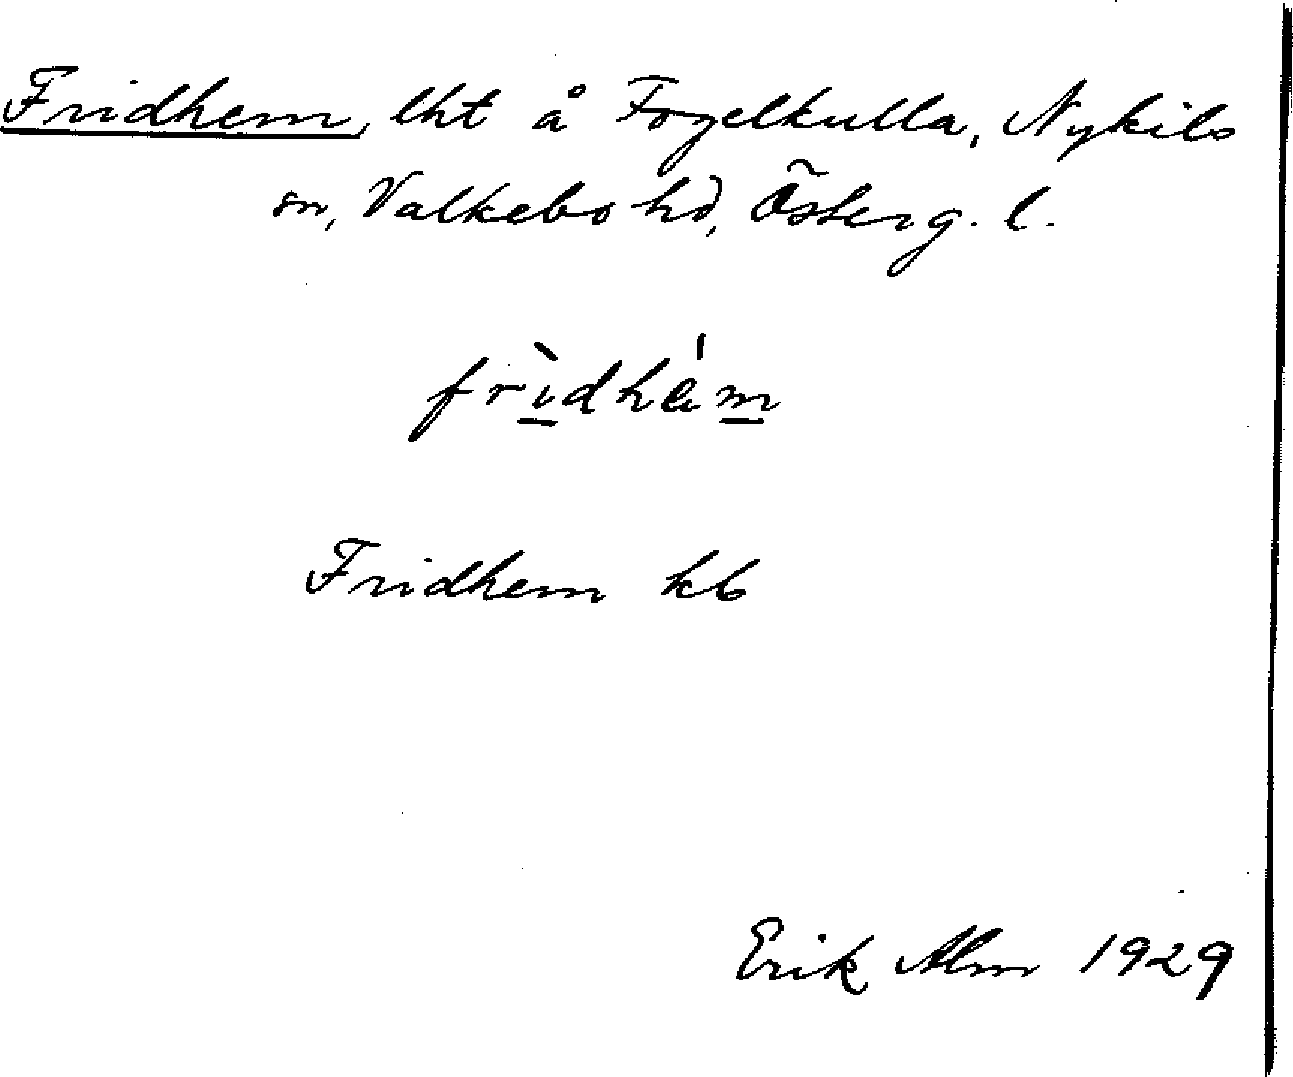 Fridhem, lht å Fogelkulla, Nykils
sn, Valkebo hd, Österg. l.
frìdhém
Fridhem kb
Erik Alm 1929